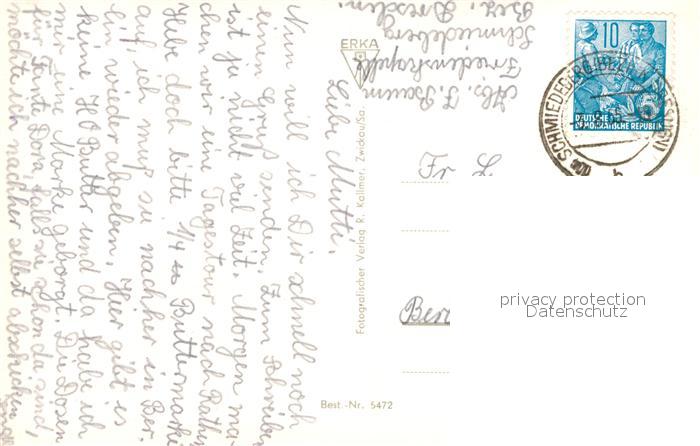 Abs. J. Baum
Friedenskapelle
Schmiedeberg
Bez. Dresden.
Liebe Mutti.
Nun will ich Dir schnell noch
einen Gruß senden. Zum Schreiben
ist ja nicht viel Zeit. Morgen ma-
chen wir eine Tagestour nach Rathen
Hebe doch bitte 1/4 Buttermarke
auf, ich muß sie nachher in Ber.
lin wieder abgeben. Hier gibt es
keine HO Butter und da habe ich
mir eine Marke geborgt. Die Dosen
für Tante Dora, falls sie schon da sind,
möchte ich nachher selbst abschicken
ERKA
Fotografischer Verlag R. Kallmer, Zwickau/Sa.
Best.-Nr. 5472
10
DEUTSCHE
DEMOKRATISCHE REPUBLIK
SCHMIEDEBERG (BZ.
Fr. L
Ber
privacy protection
Datenschutz